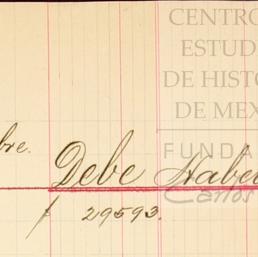 CENTRO
ESTUD
DE HISTO
DE MEX
FUNDA
Carlos
bre.
Debe Haber
$ 29593.